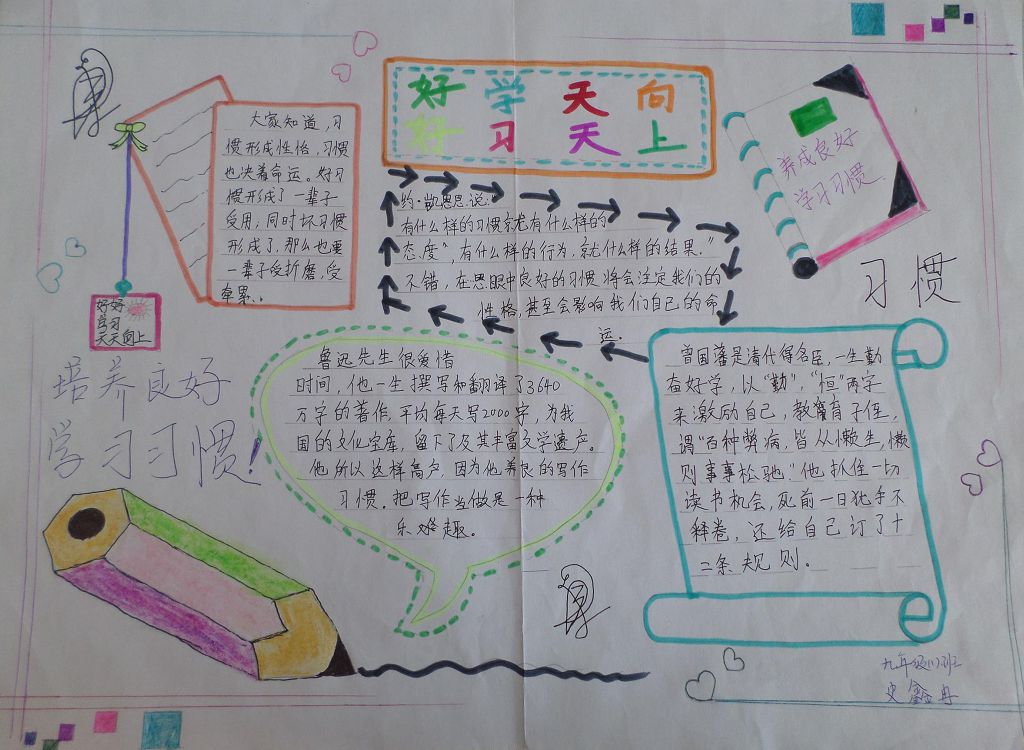 好学天向
好习天上
大家知道,习
惯形成性怡,习惯
也决着命运。好习
惯形成了一辈子
受用;同时坏习惯
形成了,那么也要
一辈子受折磨,受
牵累、
约·凯恩思说:
有什么样的习惯就有什么样的
态度”,有什么样的行为,就什么样的结果.”
不错,在思眠中良好的习惯将会注定我们的
性格,甚至会影响我们自己的命
运.
养成良好
学习习惯
习惯
好好
学习
天天向上
培养良好
学习习惯!
鲁迅先生很爱惜
时间,他一生撰写和翻译了3640
万字的著作,平均每天写2000字,为我
国的文化宝库,留下了及其丰富文学遗产。
他所以这样高夕,因为他养良的写作
习惯。把写作当做是一种
乐趣。
曾国藩是清仕得名臣,一生勤
奋好学,以“勤”,“恒”两字
来激励自己,教育子侄,
谓“百种弊病,皆从懒生,懒
则事事松驰.”他抓住一切
读书机会,死前一日犹手不
释卷,还给自己订了十
二条规则.
九年级(1)班
史鑫冉